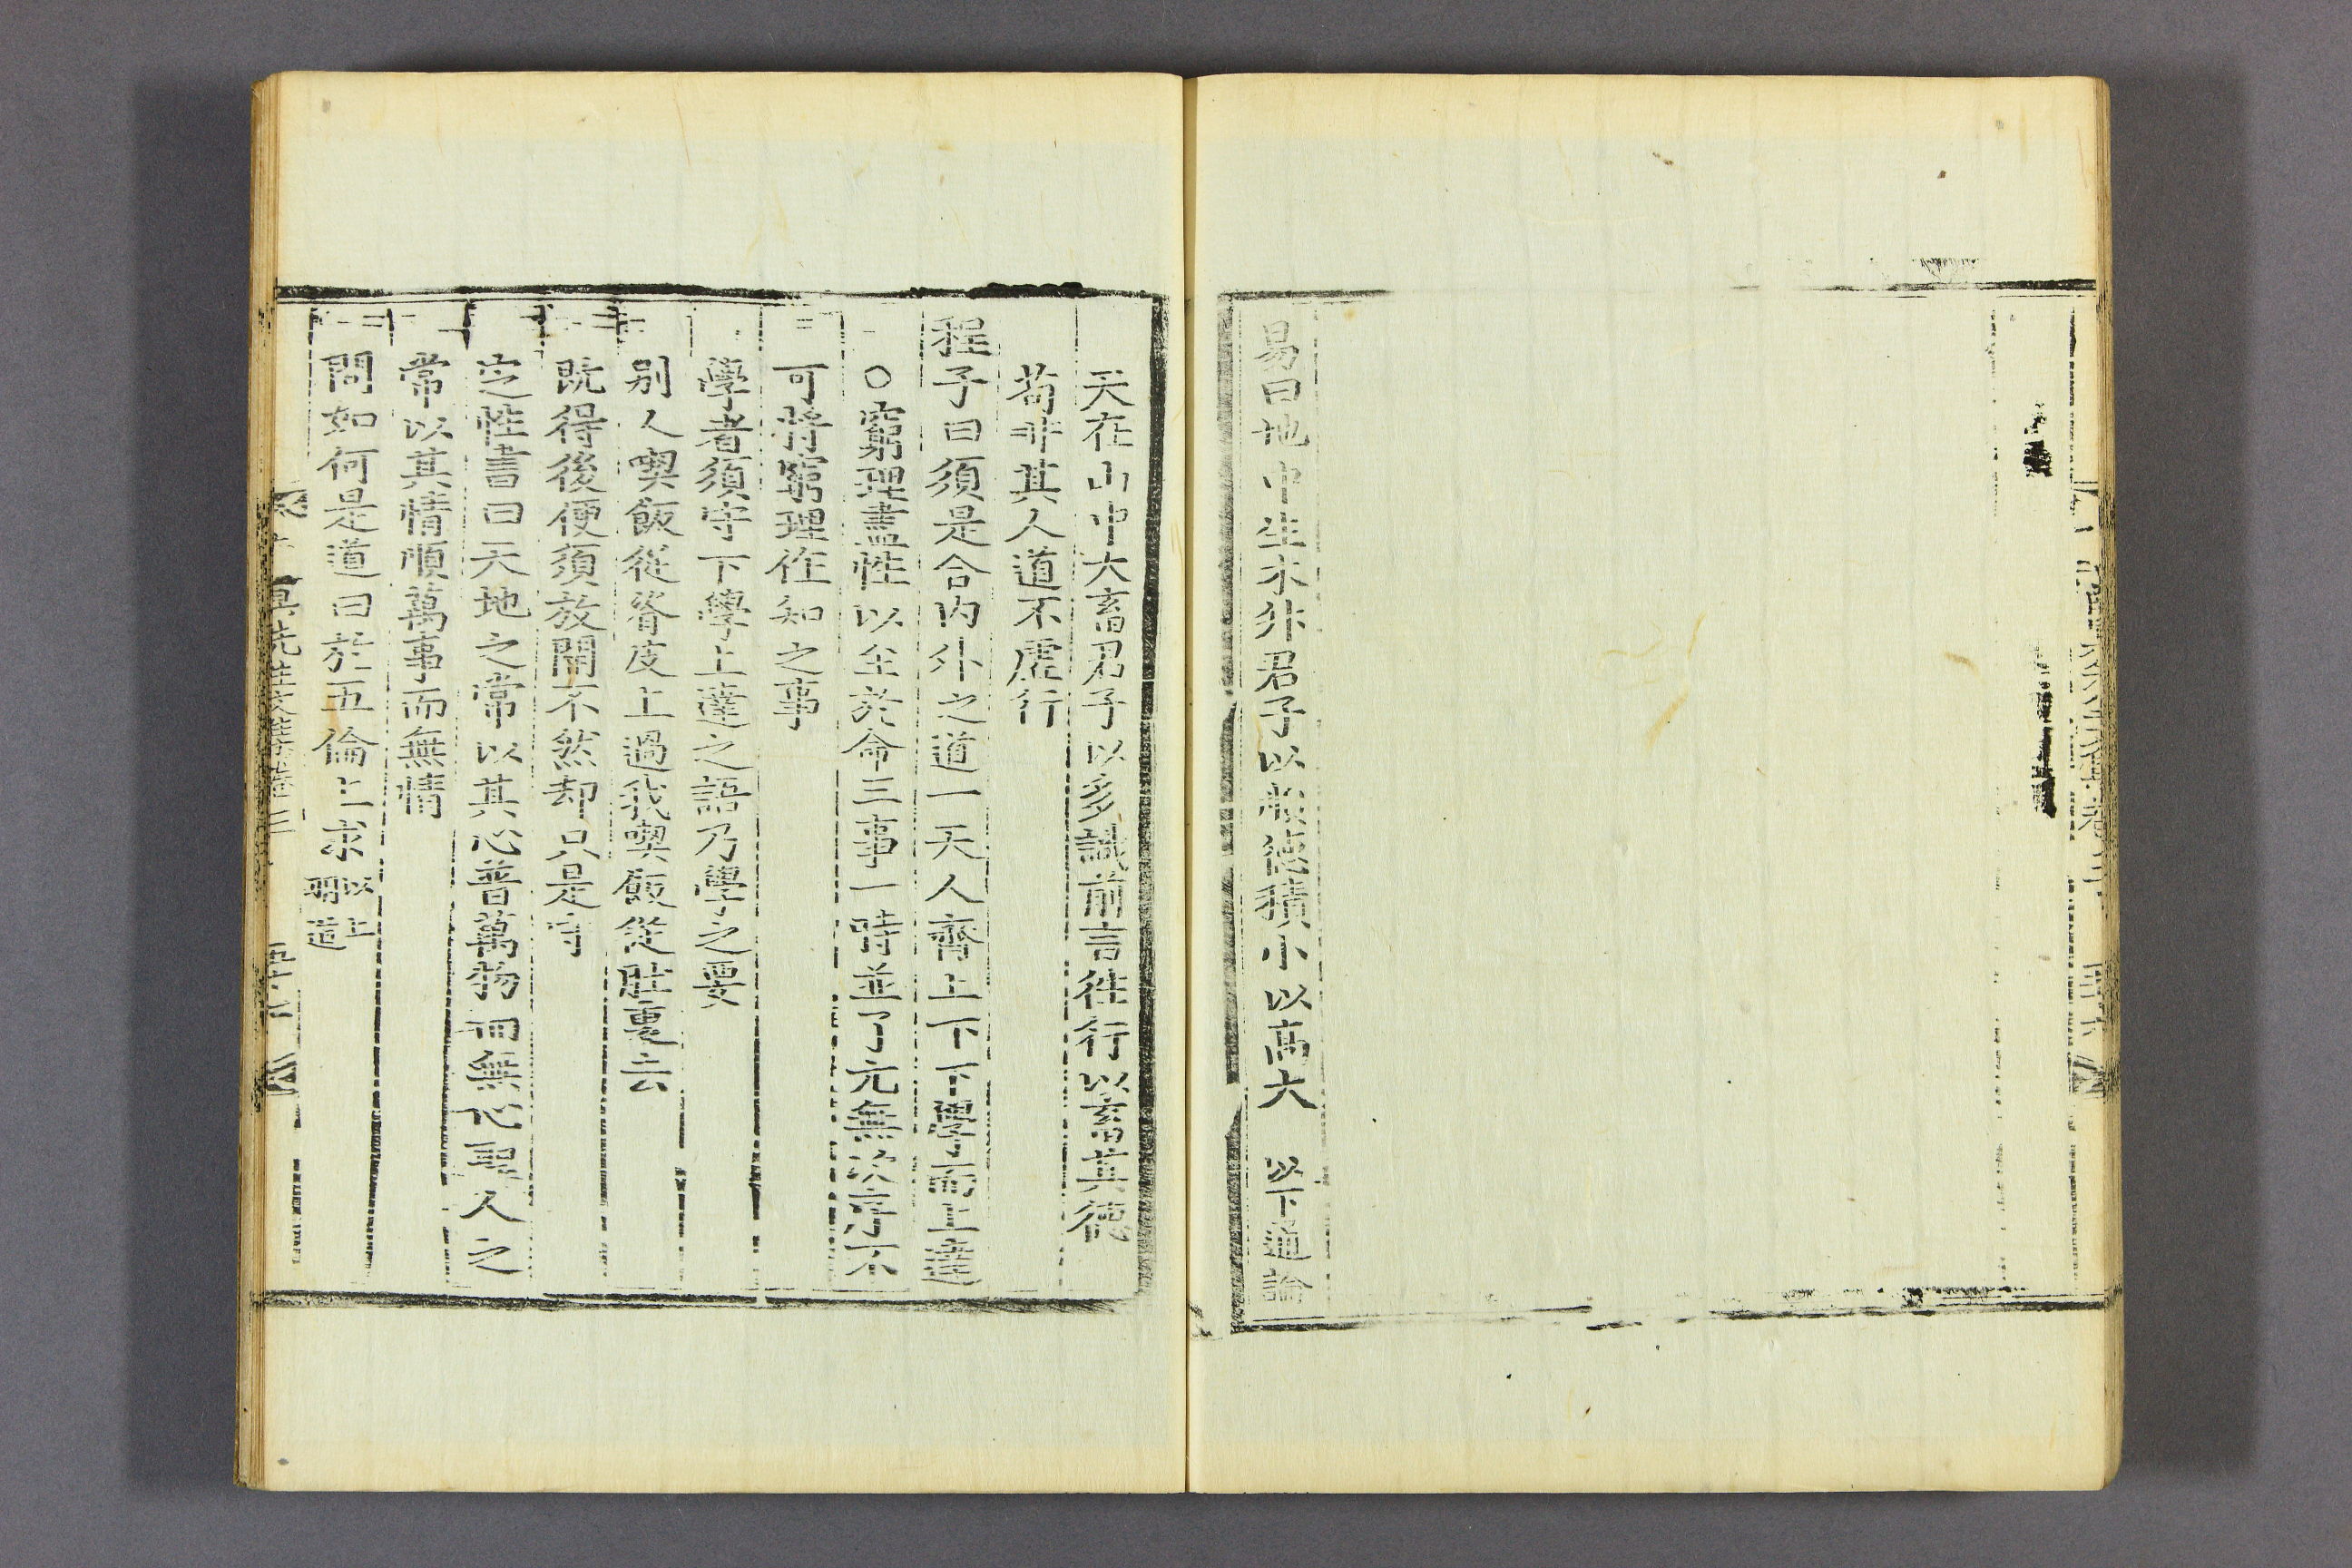 易曰地中生木升君子以順德積小以高大 以下通論
天在山中大畜君子以多識前言往行以畜其德
苟非其人道不虛行
程子曰須是合內外之道一天人齊上下下學而上達
○窮理盡性以至於命三事一時並了元無次序不
可將窮理作知之事
學者須守下學上達之語乃學之要
別人喫飯從脊皮上過我喫飯從肚裏去
既得後便須放開不然却只是守
定性書曰天地之常以其心普萬物而無心聖人之
常以其情順萬事而無情
問如何是道曰於五倫上求 以上明道